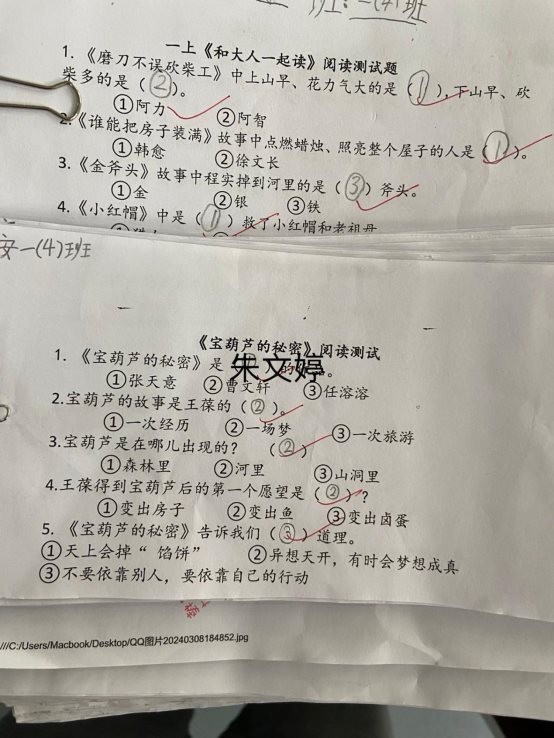 班：一(4)班
一上《和大人一起读》阅读测试题
1. 《磨刀不误砍柴工》中上山早、花力气大的是（①），下山早、砍
柴多的是（②）。
①阿力 ②阿智
2.《谁能把房子装满》故事中点燃蜡烛、照亮整个屋子的人是（①）。
①韩愈 ②徐文长
3.《金斧头》故事中程实掉到河里的是（③）斧头。
①金 ②银 ③铁
4.《小红帽》中是（①）救了小红帽和老祖母
安一(4)班
《宝葫芦的秘密》阅读测试
1. 《宝葫芦的秘密》是
朱文婷
①张天意 ②曹文轩 ③任溶溶
2.宝葫芦的故事是王葆的（②）。
①一次经历 ②一场梦 ③一次旅游
3.宝葫芦是在哪儿出现的？ （②）
①森林里 ②河里 ③山洞里
4.王葆得到宝葫芦后的第一个愿望是（②）？
①变出房子 ②变出鱼 ③变出卤蛋
5. 《宝葫芦的秘密》告诉我们（③）道理。
①天上会掉“ 馅饼” ②异想天开，有时会梦想成真
③不要依靠别人，要依靠自己的行动
///C:/Users/Macbook/Desktop/QQ图片20240308184852.jpg